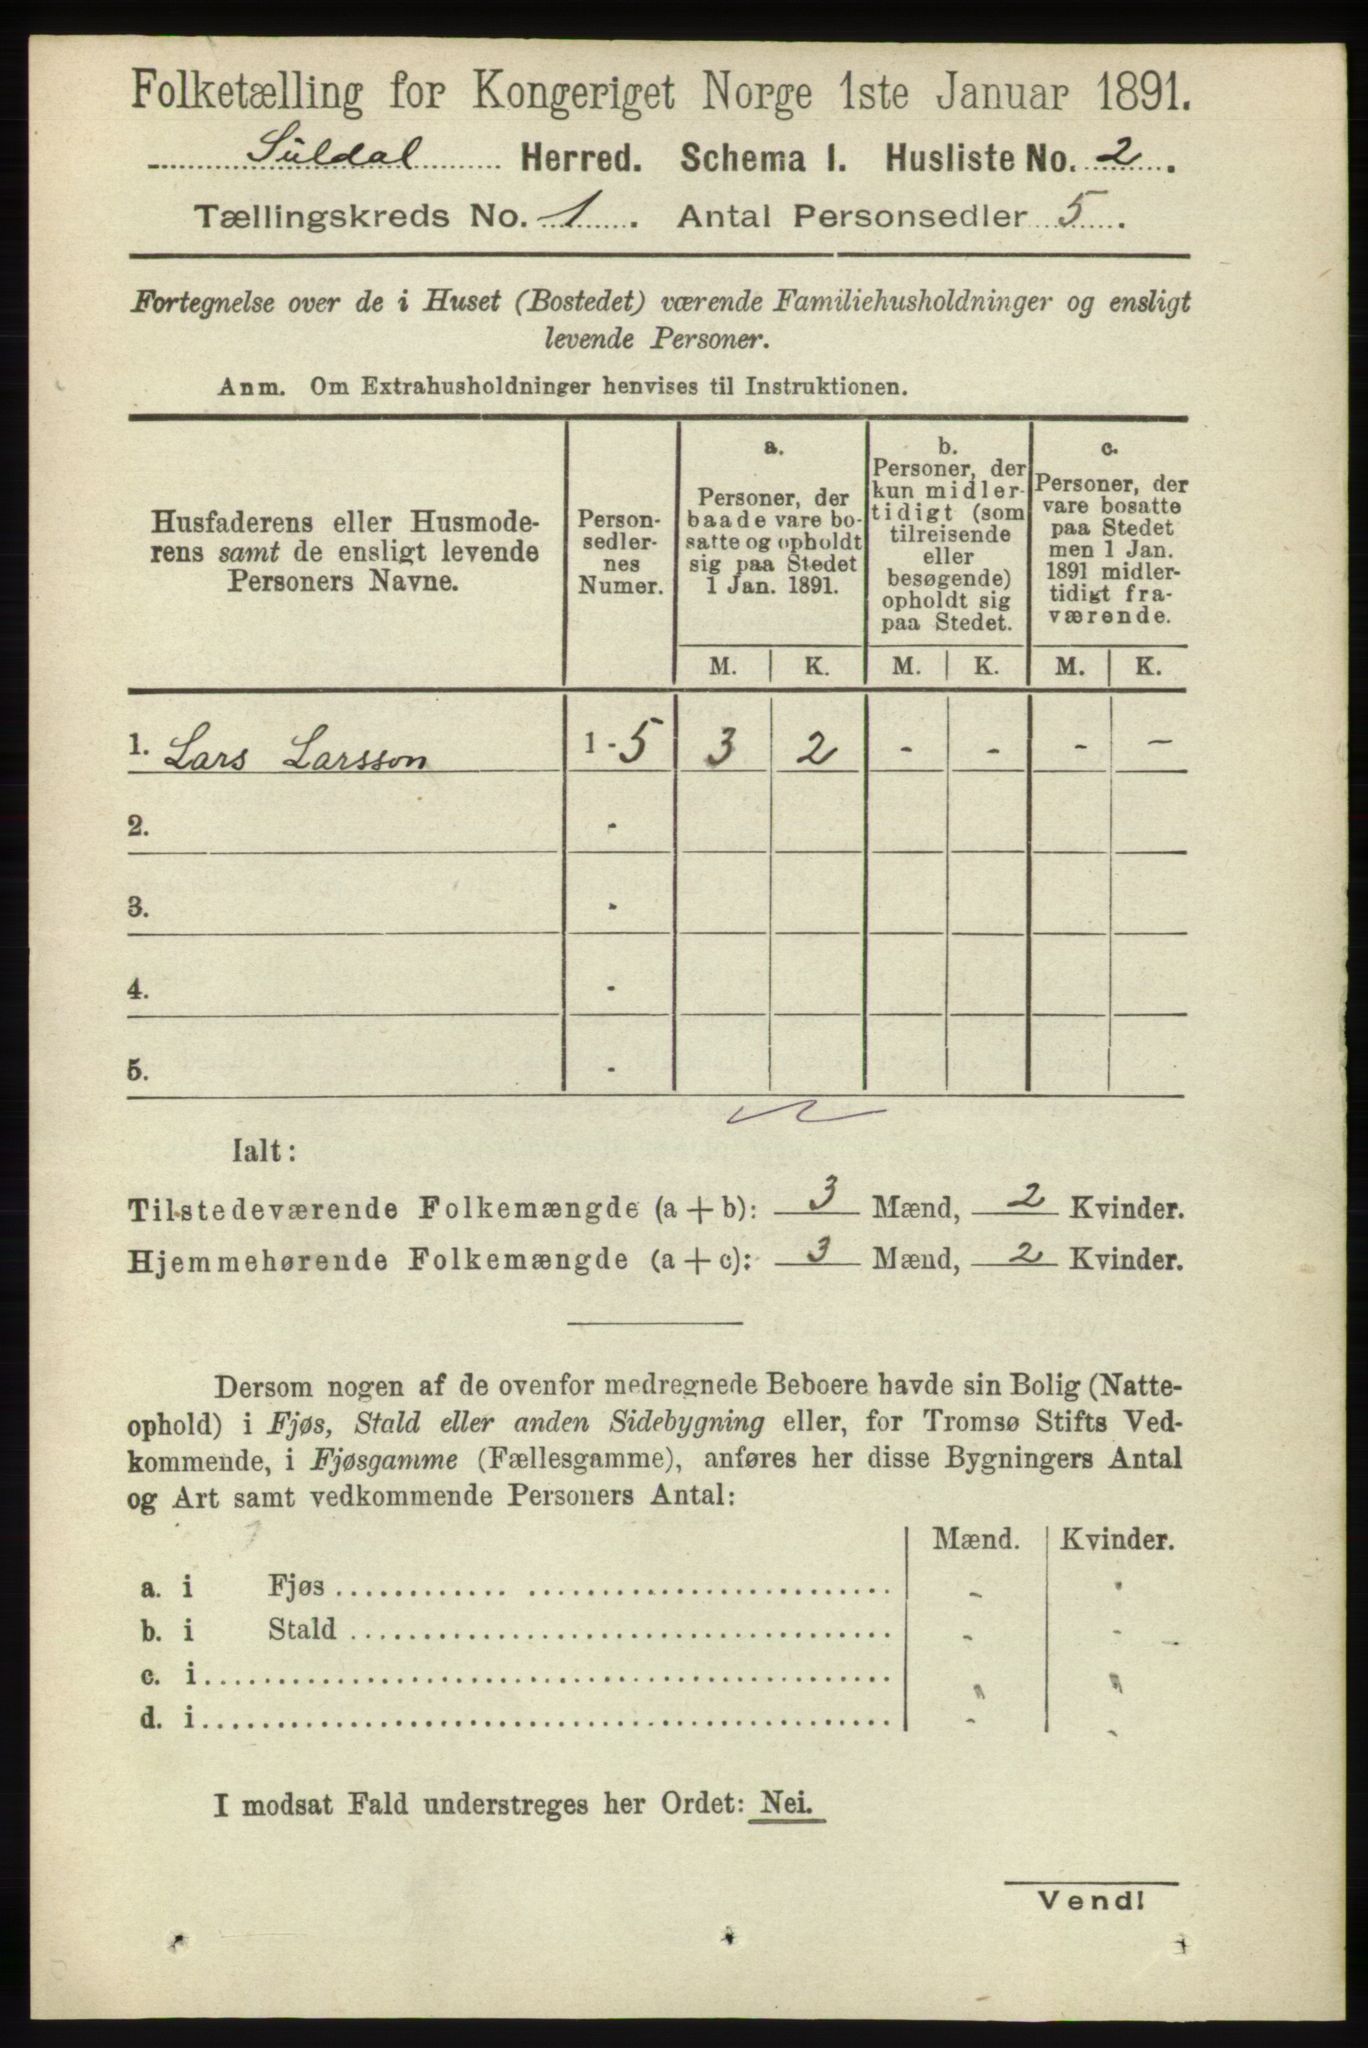 Folketælling for Kongeriget Norge 1ste Januar 1891.
Suldal Herred. Schema I. Husliste No. 2.
Tællingskreds No. 1. Antal Personsedler 5.
Fortegnelse over de i Huset (Bostedet) værende Familiehusholdninger og ensligt
levende Personer.
Anm. Om Extrahusholdninger henvises til Instruktionen.
Husfaderens eller Husmode-
rens samt de ensligt levende
Personers Navne.
Person-
sedler-
nes
Numer.
a.
Personer, der
baade vare bo-
satte og opholdt
sig paa Stedet
1 Jan. 1891.
b.
Personer, der
kun midler-
tidigt (som
tilreisende
eller
besøgende)
opholdt sig
paa Stedet.
c.
Personer, der
vare bosatte
paa Stedet
men 1 Jan.
1891 midler-
tidigt fra-
værende.
M. K. M. K. M. K.
1. Lars Larsson 1 - 5 3 2 - - - -
2. -
3. -
4. -
5. -
Ialt:
Tilstedeværende Folkemængde (a + b): 3 Mænd, 2 Kvinder.
Hjemmehørende Folkemængde (a + c): 3 Mænd, 2 Kvinder.
Dersom nogen af de ovenfor medregnede Beboere havde sin Bolig (Natte-
ophold) i Fjøs, Stald eller anden Sidebygning eller, for Tromsø Stifts Ved-
kommende, i Fjøsgamme (Fællesgamme), anføres her disse Bygningers Antal
og Art samt vedkommende Personers Antal:
Mænd. Kvinder.
a. i Fjøs - -
b. i Stald - -
c. i " "
d. i - -
I modsat Fald understreges her Ordet: Nei.
Vend!